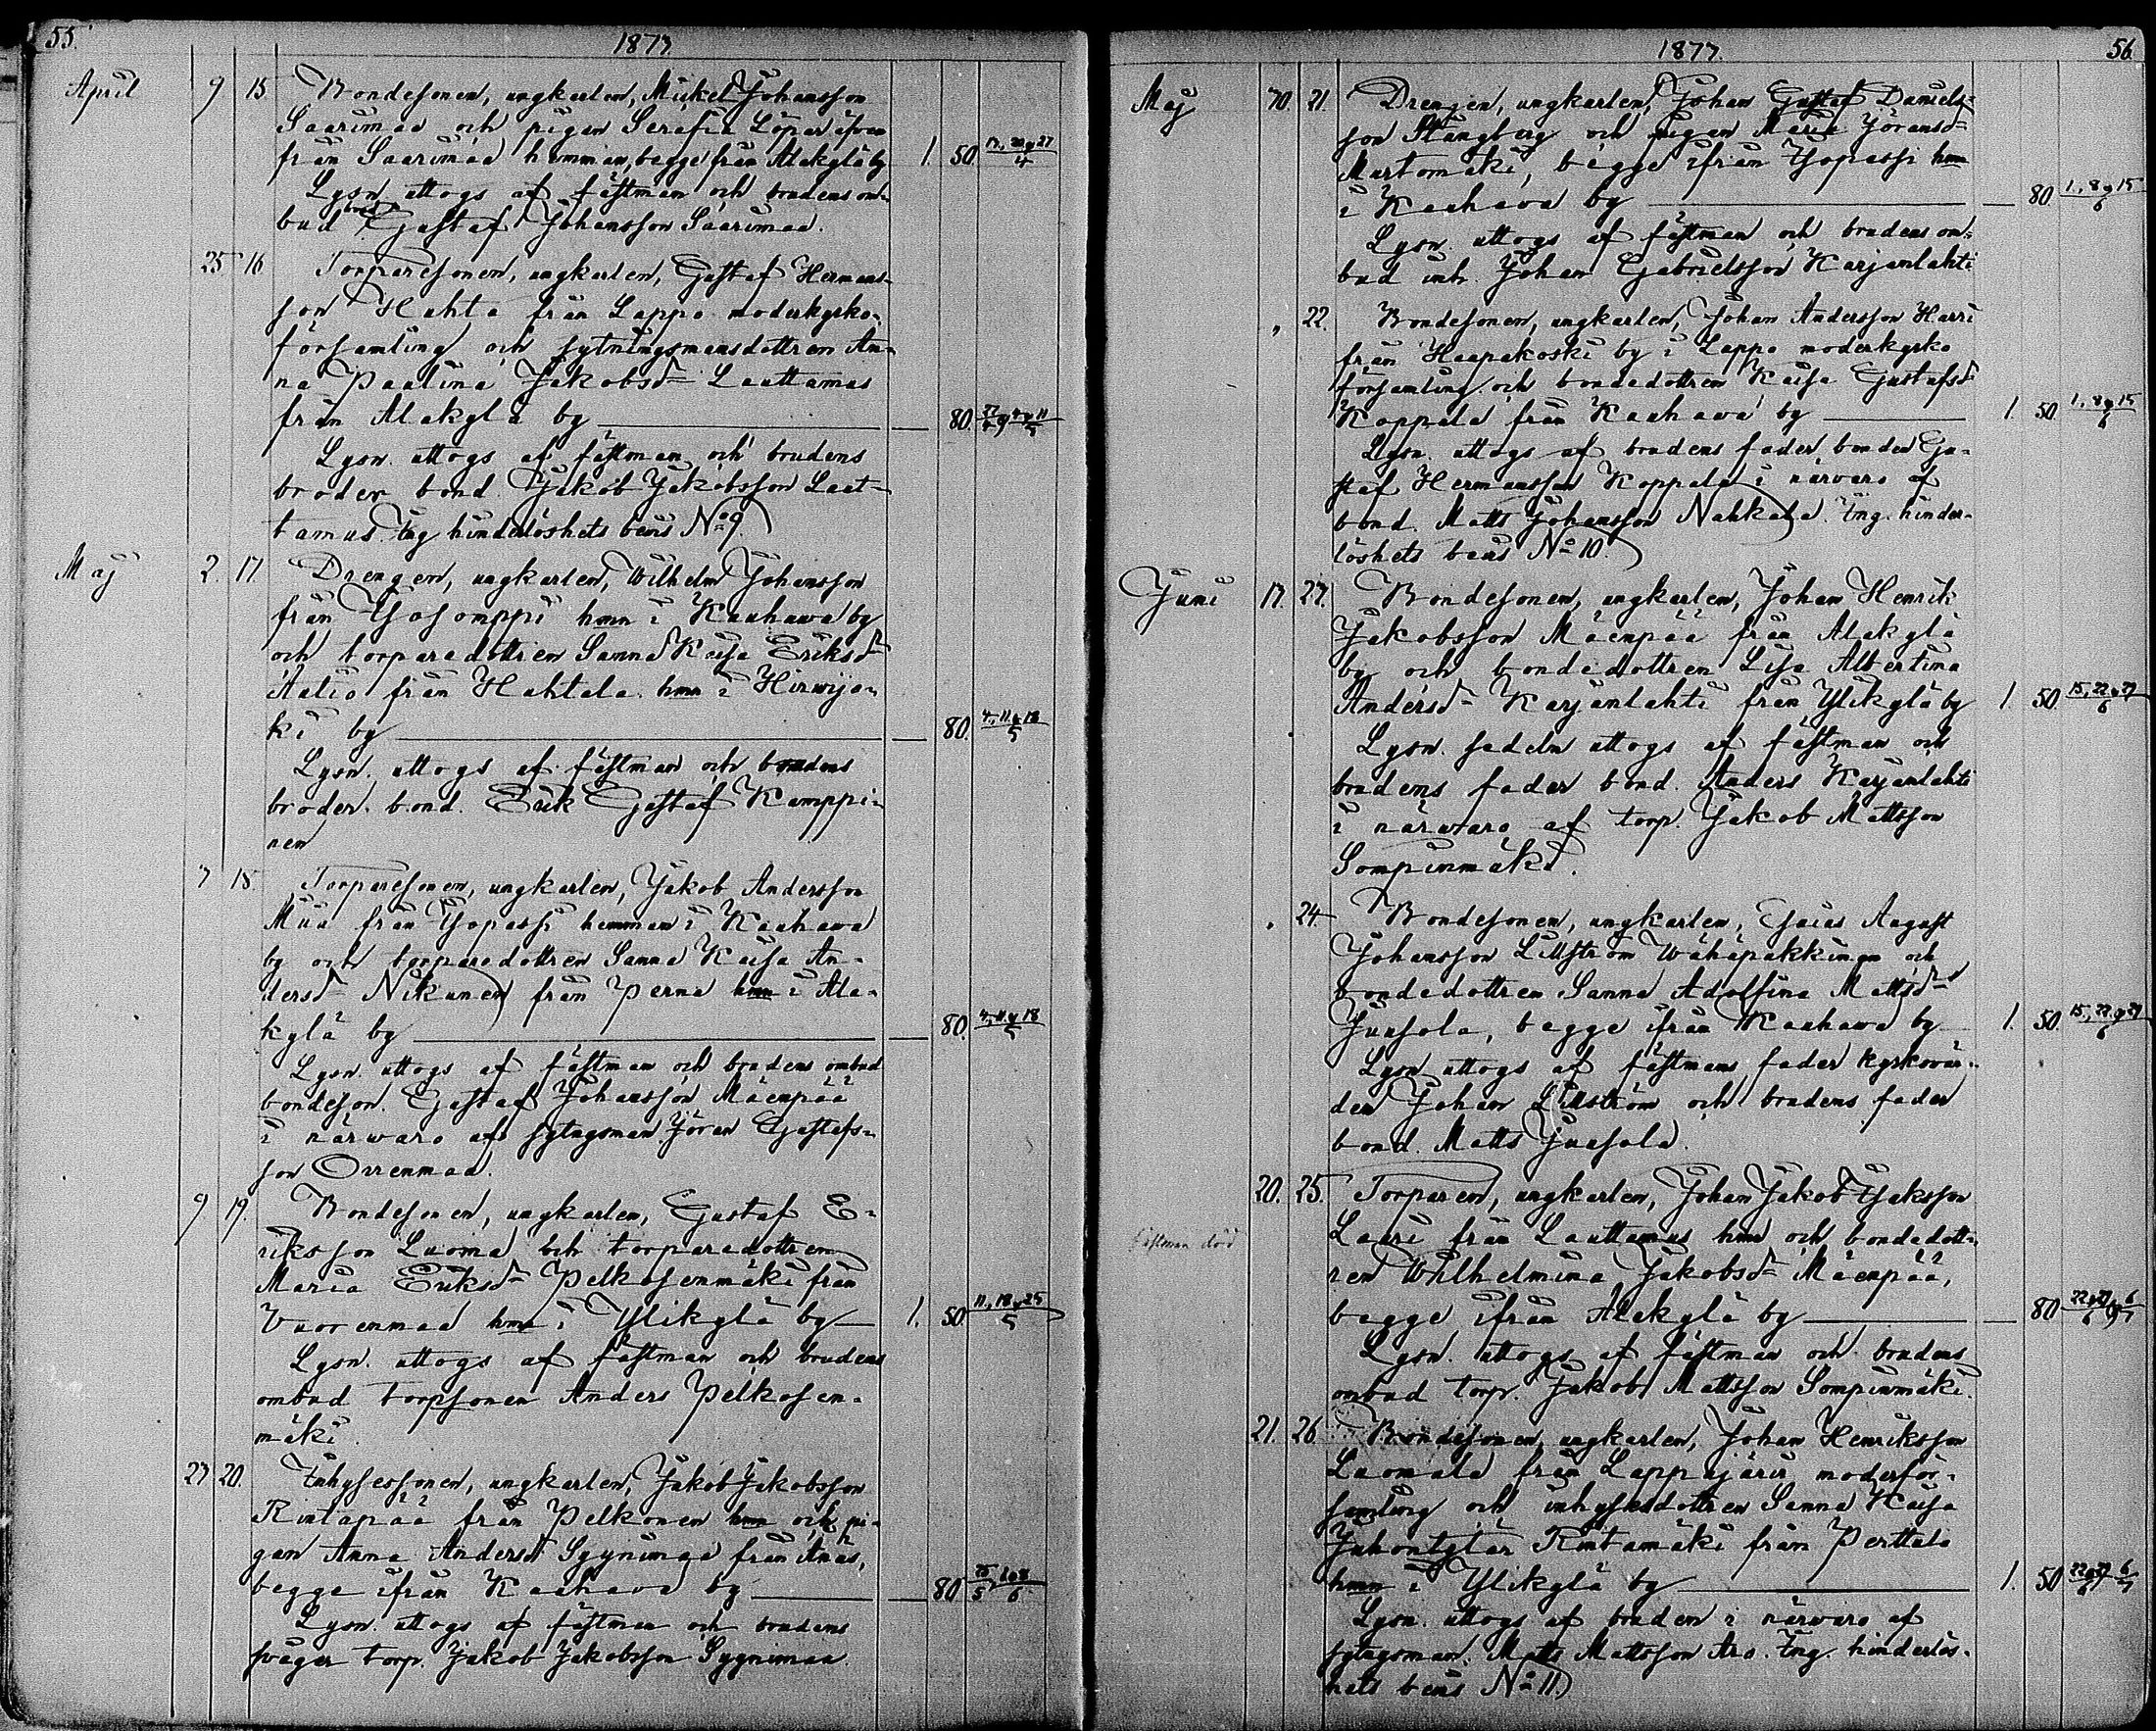 55.
1873.
April 9 15 Bondesonen, ungkarlen, Mickel Johansson
Saarimaa och pigan Serafia Löpar ifrån
från Saarimaa hemman, begge från Alakylä by 1. 50.
Lysn. uttogs af fästman och brudens om-
bud Gustaf Johansson Saarimaa.
25 16 Torparesonen, ungkarlen, Gustaf Hermans-
son Huhta från Lappo moderkyrko-
församling och sytningsmansdottren An-
na Paulina Jakobsd Lauttamus
från Alakylä by — 80.
Lysn. uttogs af fästman och brudens
broder bond. Jakob Jakobsson Laut-
tamus. Ing. hinderlöshets bevis No 9.
Maj 2. 17. Drengen, ungkarlen, Wilhelm Johansson
från hmn i Kauhawa by
och torparedottren Sanna Kaisa Eriksd
Aalio från Huhtala hmn i Hirwijo-
ki by — 80. 4, 11 & 18/5
Lysn. uttogs af fästman och brudens
broder bond. Erik Gustaf Kamppi-
nen
7 18. Torparesonen, ungkarlen, Jakob Andersson
från Passi hemman i Kauhawa
by och torparedottren Sanna Kaisa An-
dersd Nikunen från Perna hmn i Ala-
kylä by — 80. 4, 11 & 18/5
Lysn. uttogs af fästman och brudens ombud
bondeson. Gustaf Johansson Mäenpää
i närwaro af sytngsman Jöran Gustafs-
son Orrenmaa.
9. 19. Bondesonen, ungkarlen, Gustaf E-
riksson Luoma och torparedottren
Maria Eriksd Pelkosenmäki från
Vuorenmaa hmn i Ylikylä by 1. 50. 11, 18 & 25/5
Lysn. uttogs af fästman och brudens
ombud torpsonen Anders Pelkosen-
mäki.
27 20. Inhysessonen, ungkarlen, Jakob Jakobsson
Rintapää från Pelkonen hmn och pi-
gan Anna Andersd Syynimaa från Änäs,
begge ifrån Kauhava by — 80
Lysn. uttogs af fästman och brudens
svåger torp. Jakob Jakobsson Syynimaa
1873.
56.
Maj 21. Drengen, ungkarlen, Johan Gustaf Daniels-
son Stångberg och pigan Maria Jöransd
Martomäki, begge ifrån Passi hmn
i Kauhava by — 80. 1, 8 & 15/6
Lysn. uttogs af fästman och brudens om-
bud inh. Johan Gabrielsson Karjanlahti
" 22. Bondesonen, ungkarlen, Johan Andersson Harri
från Haapakoski by i Lappo moderkyrko
församling och bondedottren Kaisa Gustafsd
Koppala från Kauhava by — 1. 50. 1, 8 & 15/6
Lysn. uttogs af brudens fader bonden Gu-
staf Hermansson Koppala i närvaro af
bond. Matts Johansson Nahkala. Ing. hinder-
löshets bevis No 10.
Juni 17. 23. Bondesonen, ungkarlen, Johan Henrik
Jakobsson Mäenpää från Alakylä
by och bondedottren Lisa Albertina
Andersd Karjanlahti från Ylikylä by 1. 50.
Lysn. sedeln uttogs af fästman och
brudens fader bond. Anders Karjanlahti
i närwaro af torp. Jakob Mattsson
Sompinmäki.
" 24. Bondesonen, ungkarlen, Esaias August
Johansson Lillström Wähäpakkinen och
bondedottren Sanna Adolfina Mattsd
Juusola, begge ifrån Kauhawa by 1. 50.
Lysn. uttogs af fästmans fader kyrkovär-
den Johan Lillström och brudens fader
bond. Matts Juusola.
20. 25. Torparen, ungkarlen, Johan Jakob Isaksson
fästman död
Lauri från Lauttamus hmn och bondedott-
ren Wilhelmina Jakobsd Mäenpää,
begge ifrån Alakylä by — 80
Lysn. uttogs af fästman och brudens
ombud torp. Jakob Mattsson Sompinmäki.
21. 26. Bondesonen, ungkarlen, Johan Henriksson
Luomala från Lappajärvi moderför-
samling och inhysesdottren Sanna Kaisa
Juhontytär Rintamäki från Perttula
hmn i Ylikylä by — 1. 50
Lysn. uttogs af bruden i närwaro af
sytngsman. Matts Mattsson Aro. Ing. hinderlös-
hets bevis No 11.